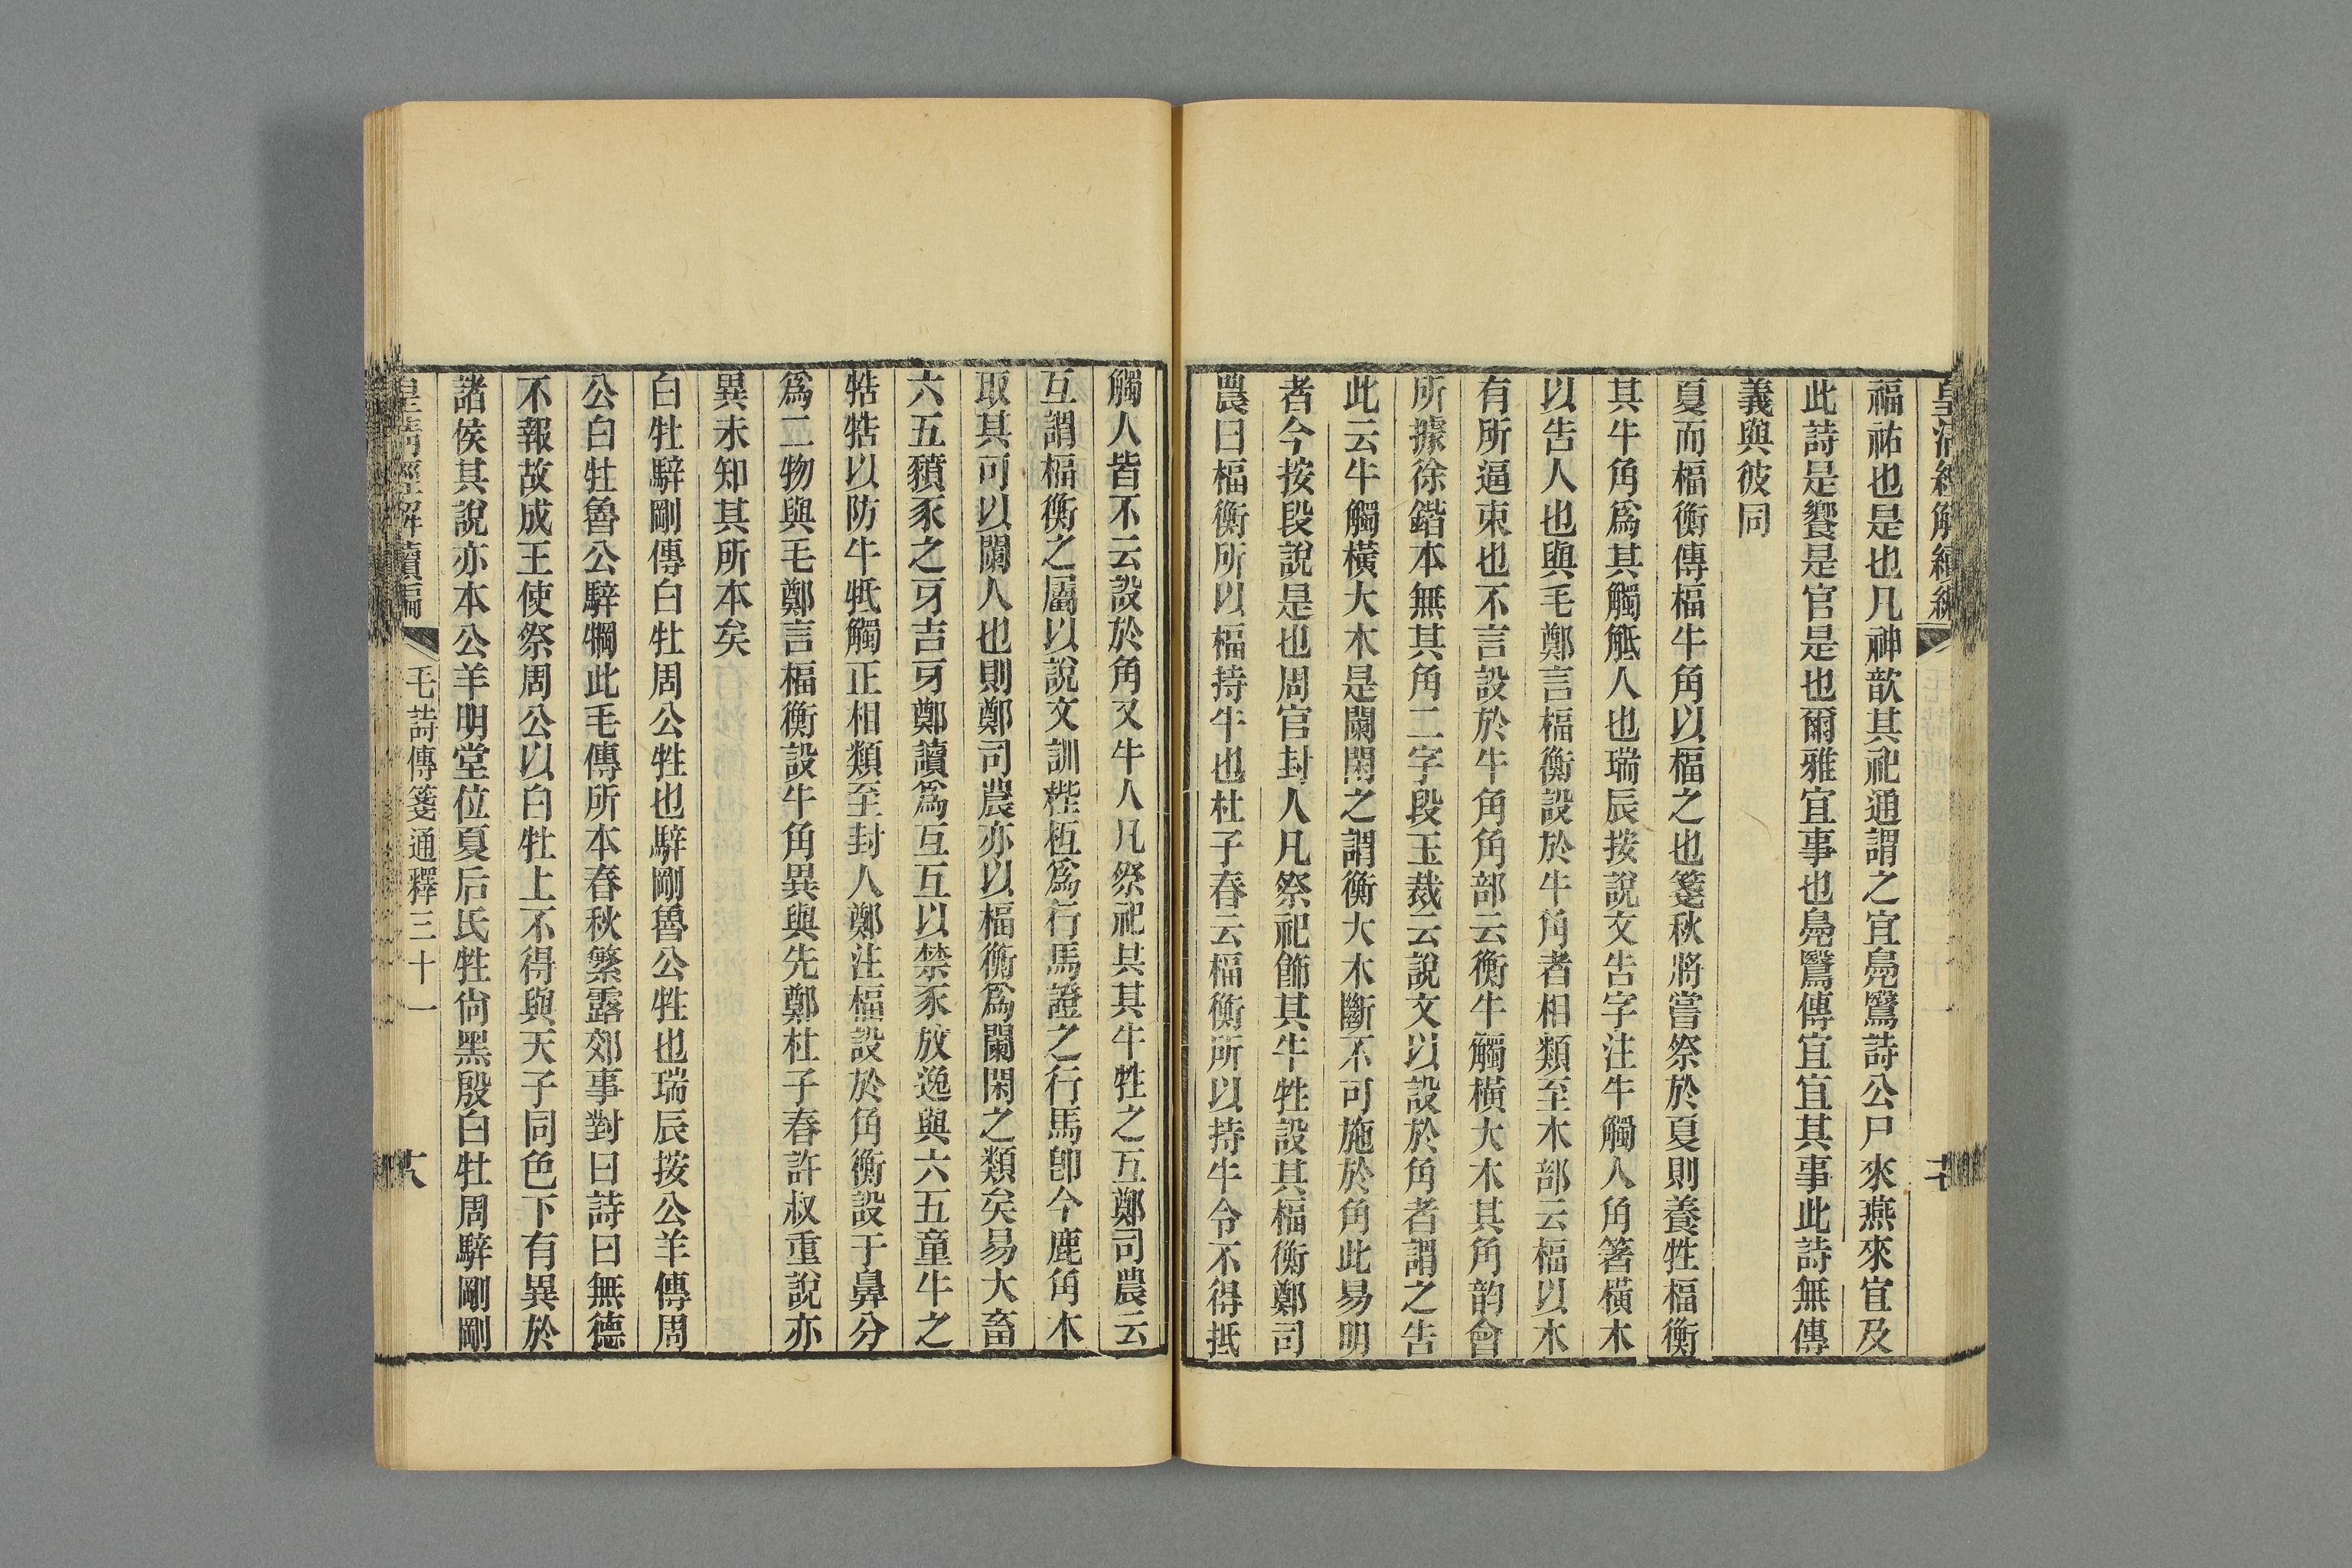 皇清經解續編
福祐也是也凡神歆其祀通謂之宜鳧鷖詩公尸來燕來宜及
此詩是饗是宜是也爾雅宜事也鳧鷖傳宜宜其事此詩無傳
義與彼同
夏而楅衡傳楅牛角以楅之也箋秋將嘗祭於夏則養牲楅衡
其牛角爲其觸觝人也瑞辰按說文告字注牛觸人角箸橫木
以告人也與毛鄭言楅衡設於牛角者相類至木部云楅以木
有所逼束也不言設於牛角角部云衡牛觸橫大木其角韵會
所據徐鍇本無其角二字段玉裁云說文以設於角者謂之告
此云牛觸橫大木是闌閑之謂衡大木斷不可施於角此易明
者今按段說是也周官封人凡祭祀飾其牛牲設其楅衡鄭司
農曰楅衡所以楅持牛也杜子春云楅衡所以持牛令不得抵
觸人皆不云設於角又牛人凡祭祀共其牛牲之互鄭司農云
互謂楅衡之屬以說文訓梐枑爲行馬證之行馬卽今鹿角木
取其可以闌人也則鄭司農亦以楅衡爲闌閑之類矣易大畜
六五豶豕之牙吉牙鄭讀爲互互以禁豕放逸與六五童牛之
牿牿以防牛牴觸正相類至封人鄭注楅設於角衡設于鼻分
爲二物與毛鄭言楅衡設牛角異與先鄭杜子春許叔重說亦
異未知其所本矣
白牡騂剛傳白牡周公牲也騂剛魯公牲也瑞辰按公羊傳周
公白牡魯公騂犅此毛傳所本春秋繁露郊事對曰詩曰無德
不報故成王使祭周公以白牡上不得與天子同色下有異於
諸侯其說亦本公羊明堂位夏后氏牲尙黑殷白牡周騂剛剛
皇清經解續編
毛詩傳箋通釋三十一
六